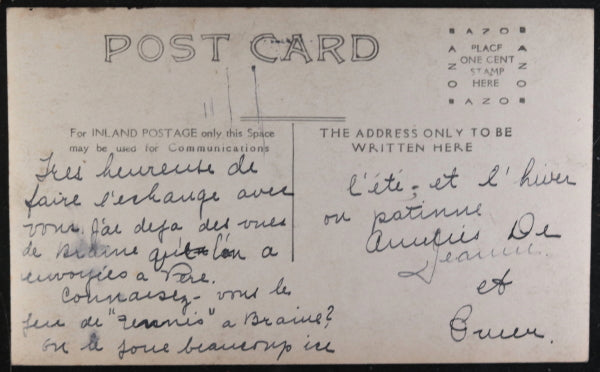 POST CARD
AZO
PLACE
ONE CENT
STAMP
HERE
AZO
For INLAND POSTAGE only this Space
may be used for Communications
THE ADDRESS ONLY TO BE
WRITTEN HERE
Tres heureuse de
faire l'echange avec
vous, J'ai deja des vues
de Braine qu'l'on a
envoyées a Père.
Connaisez-vous le
jeu de "Tennis" a Braine?
on le joue beaucoup ice
l'été, et l'hiver
on patinne
Amitiés De
Jeanne.
et